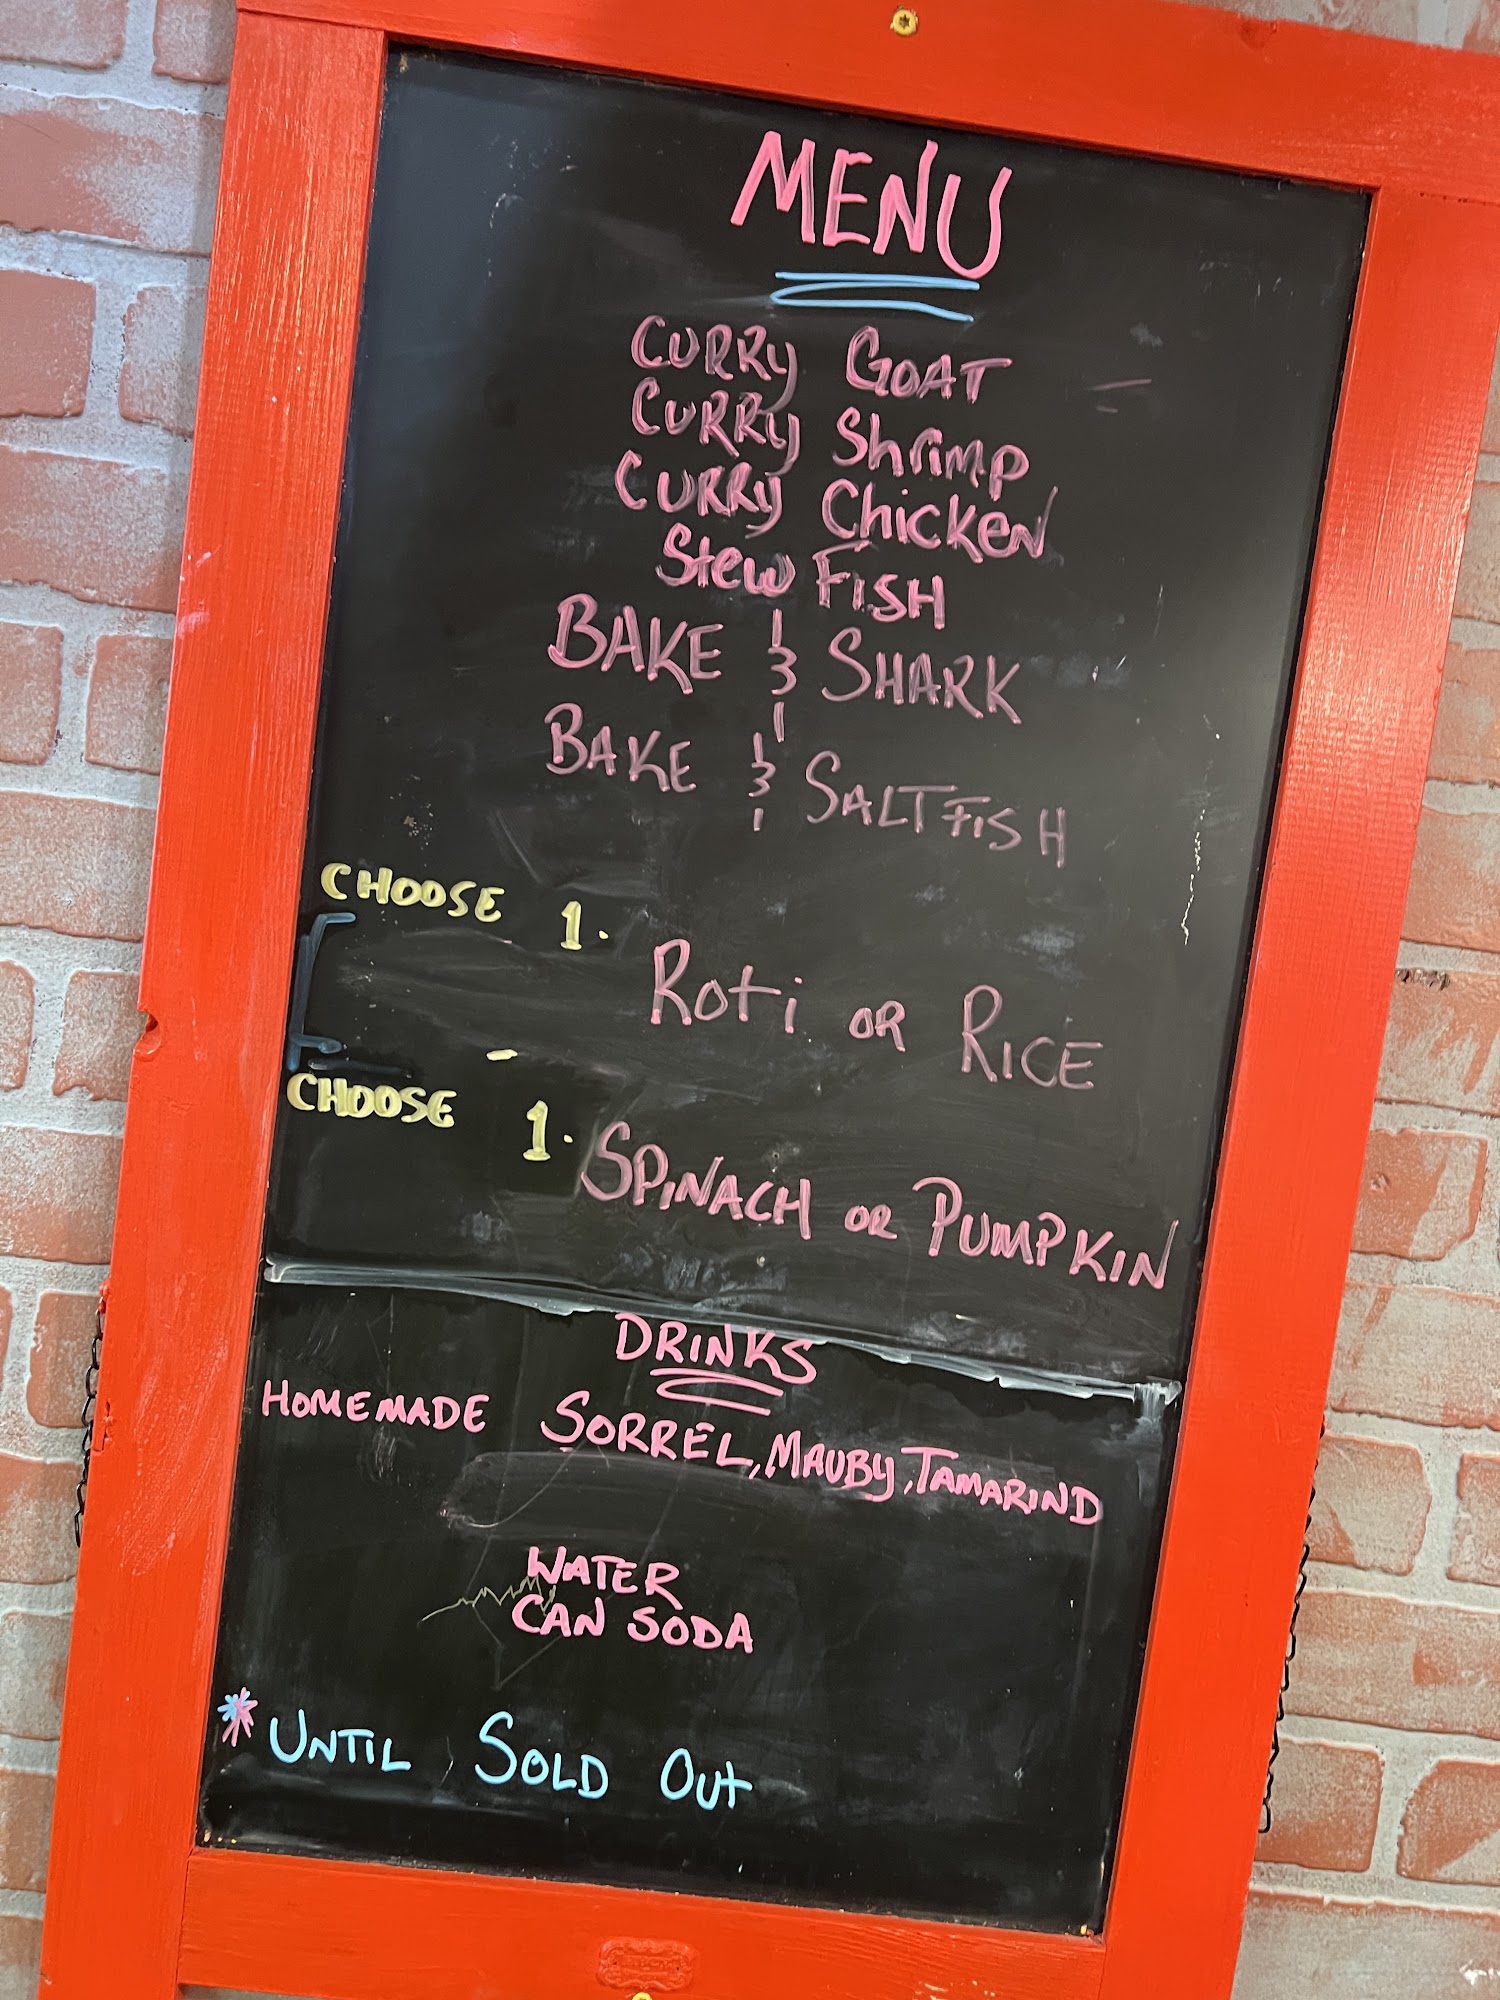 MENU
CURRY GOAT
CURRY Shrimp
CURRY Chicken
Stew FISH
BAKE & SHARK
BAKE & SALTFISH
CHOOSE 1.
Roti OR RICE
CHOOSE 1.
SPINACH OR PUMPKIN
DRINKS
HOMEMADE SORREL, MAUBY, TAMARIND
WATER
CAN SODA
* UNTIL SOLD Out